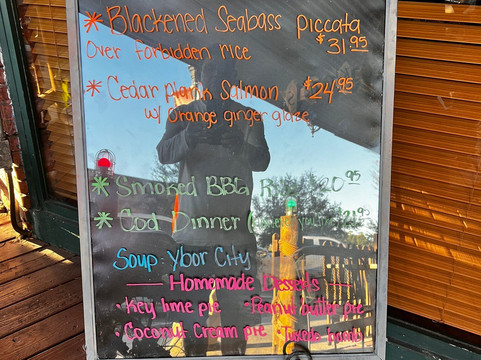 * Blackened Seabass piccata
$31.95
Over forbidden rice
* Cedar plank Salmon $24.95
w/ orange ginger glaze
* Smoked BBQ 20.95
* Cod Dinner
Soup: Ybor City
— Homemade Desserts —
· Key lime pie · Peanut butter pie
· Coconut Cream pie · Tuxedo bomb